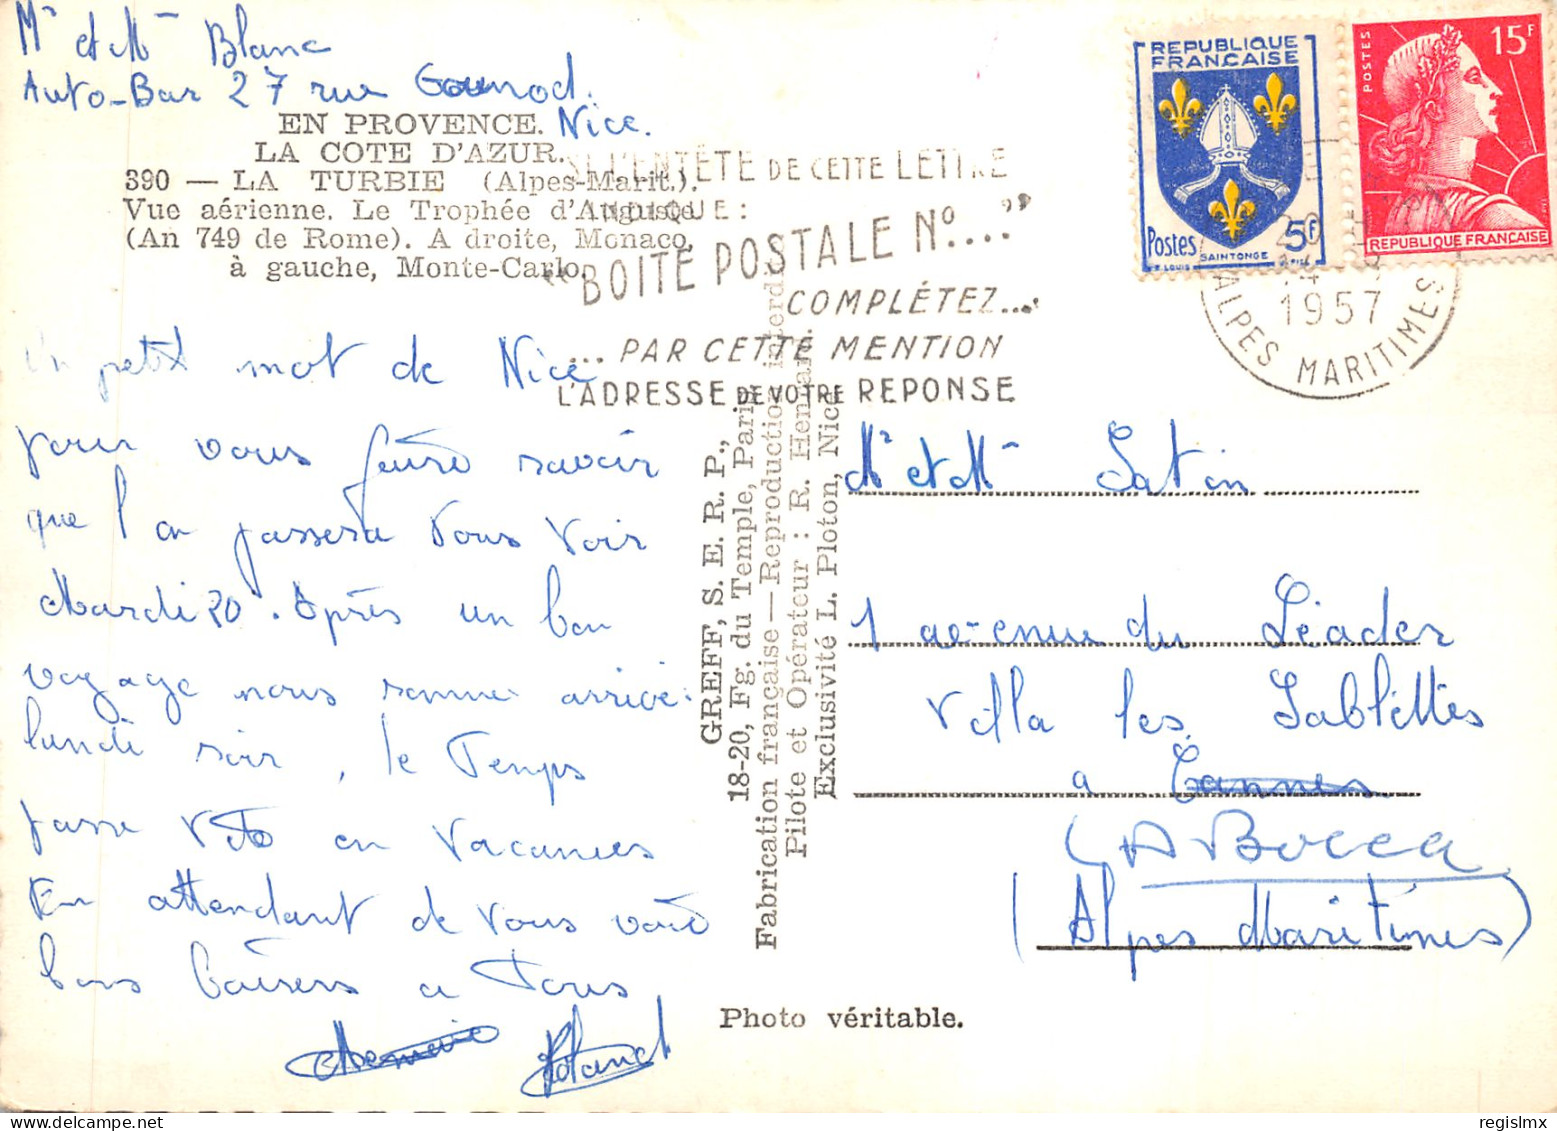 Mr et Mme Blanc
Auto-Bar 27 rue Gounod.
Nice.
EN PROVENCE.
LA COTE D'AZUR.
390 — LA TURBIE (Alpes-Marit.).
Vue aérienne. Le Trophée d'Auguste
(An 749 de Rome). A droite, Monaco,
à gauche, Monte-Carlo.
SI L'ENTÊTE DE CETTE LETTRE
INDIQUE :
"BOITE POSTALE No...."
COMPLÉTEZ...
... PAR CETTE MENTION
L'ADRESSE DE VOTRE REPONSE
REPUBLIQUE
FRANCAISE
Postes 5F
E. LOUIS SAINTONGE
POSTES
15F
REPUBLIQUE FRANCAISE
20
1957
ALPES MARITIMES
Un petit mot de Nice
pour vous faire savoir
que l'on passera vous voir
Mardi 20. Après un bon
voyage nous sommes arrivé
lundi soir, le Temps
passe vite en vacances
En attendant de vous voir
bons baisers a Tous
Roland
GREFF, S. E. R. P.,
18-20, Fg. du Temple, Paris
Fabrication française — Reproduction interdite
Pilote et Opérateur : R. Henrard.
Exclusivité L. Ploton, Nice
Mr et Mme Satin
1 avenue du Léader
Villa les Sablettes
a Cannes
LA Bocca
(Alpes Maritimes)
Photo véritable.
regislmx